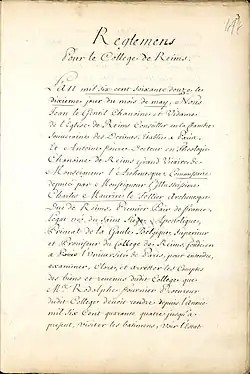 147
Reglemens
Pour le College de Reims.
L'an mil six cent soixante douze les
dixieme jour du mois de may, Nous
Jean le Gentil Chanoine et Vidame
de l'Eglise de Reims Conseiller en la chambre
Souveraine des Decimes
Et Antoine Docteur en Theologie
Chanoine de Reims Grand Vicaire de
Monseigneur l'Archevesque Commissaires
deputé par Monseigneur l'Illustrissime
Charles Maurice le Tellier Archevesque
Duc de Reims, Premier Pair de france
Legat né du Saint Siege Apostolique,
Primat de la Gaule Belgique, Superieur
et Proviseur du College de Reims fondé en
l'Université de Paris, pour entendre,
examiner, Clore, et arrester les Comptes
des biens et revenus dudit College que
Me. Rodolphe fournier Procureur
dudit College devoit rendre depuis l'année
mil Six Cent quarante quatre jusqu'à
present, visiter les batimens, voir l'estat